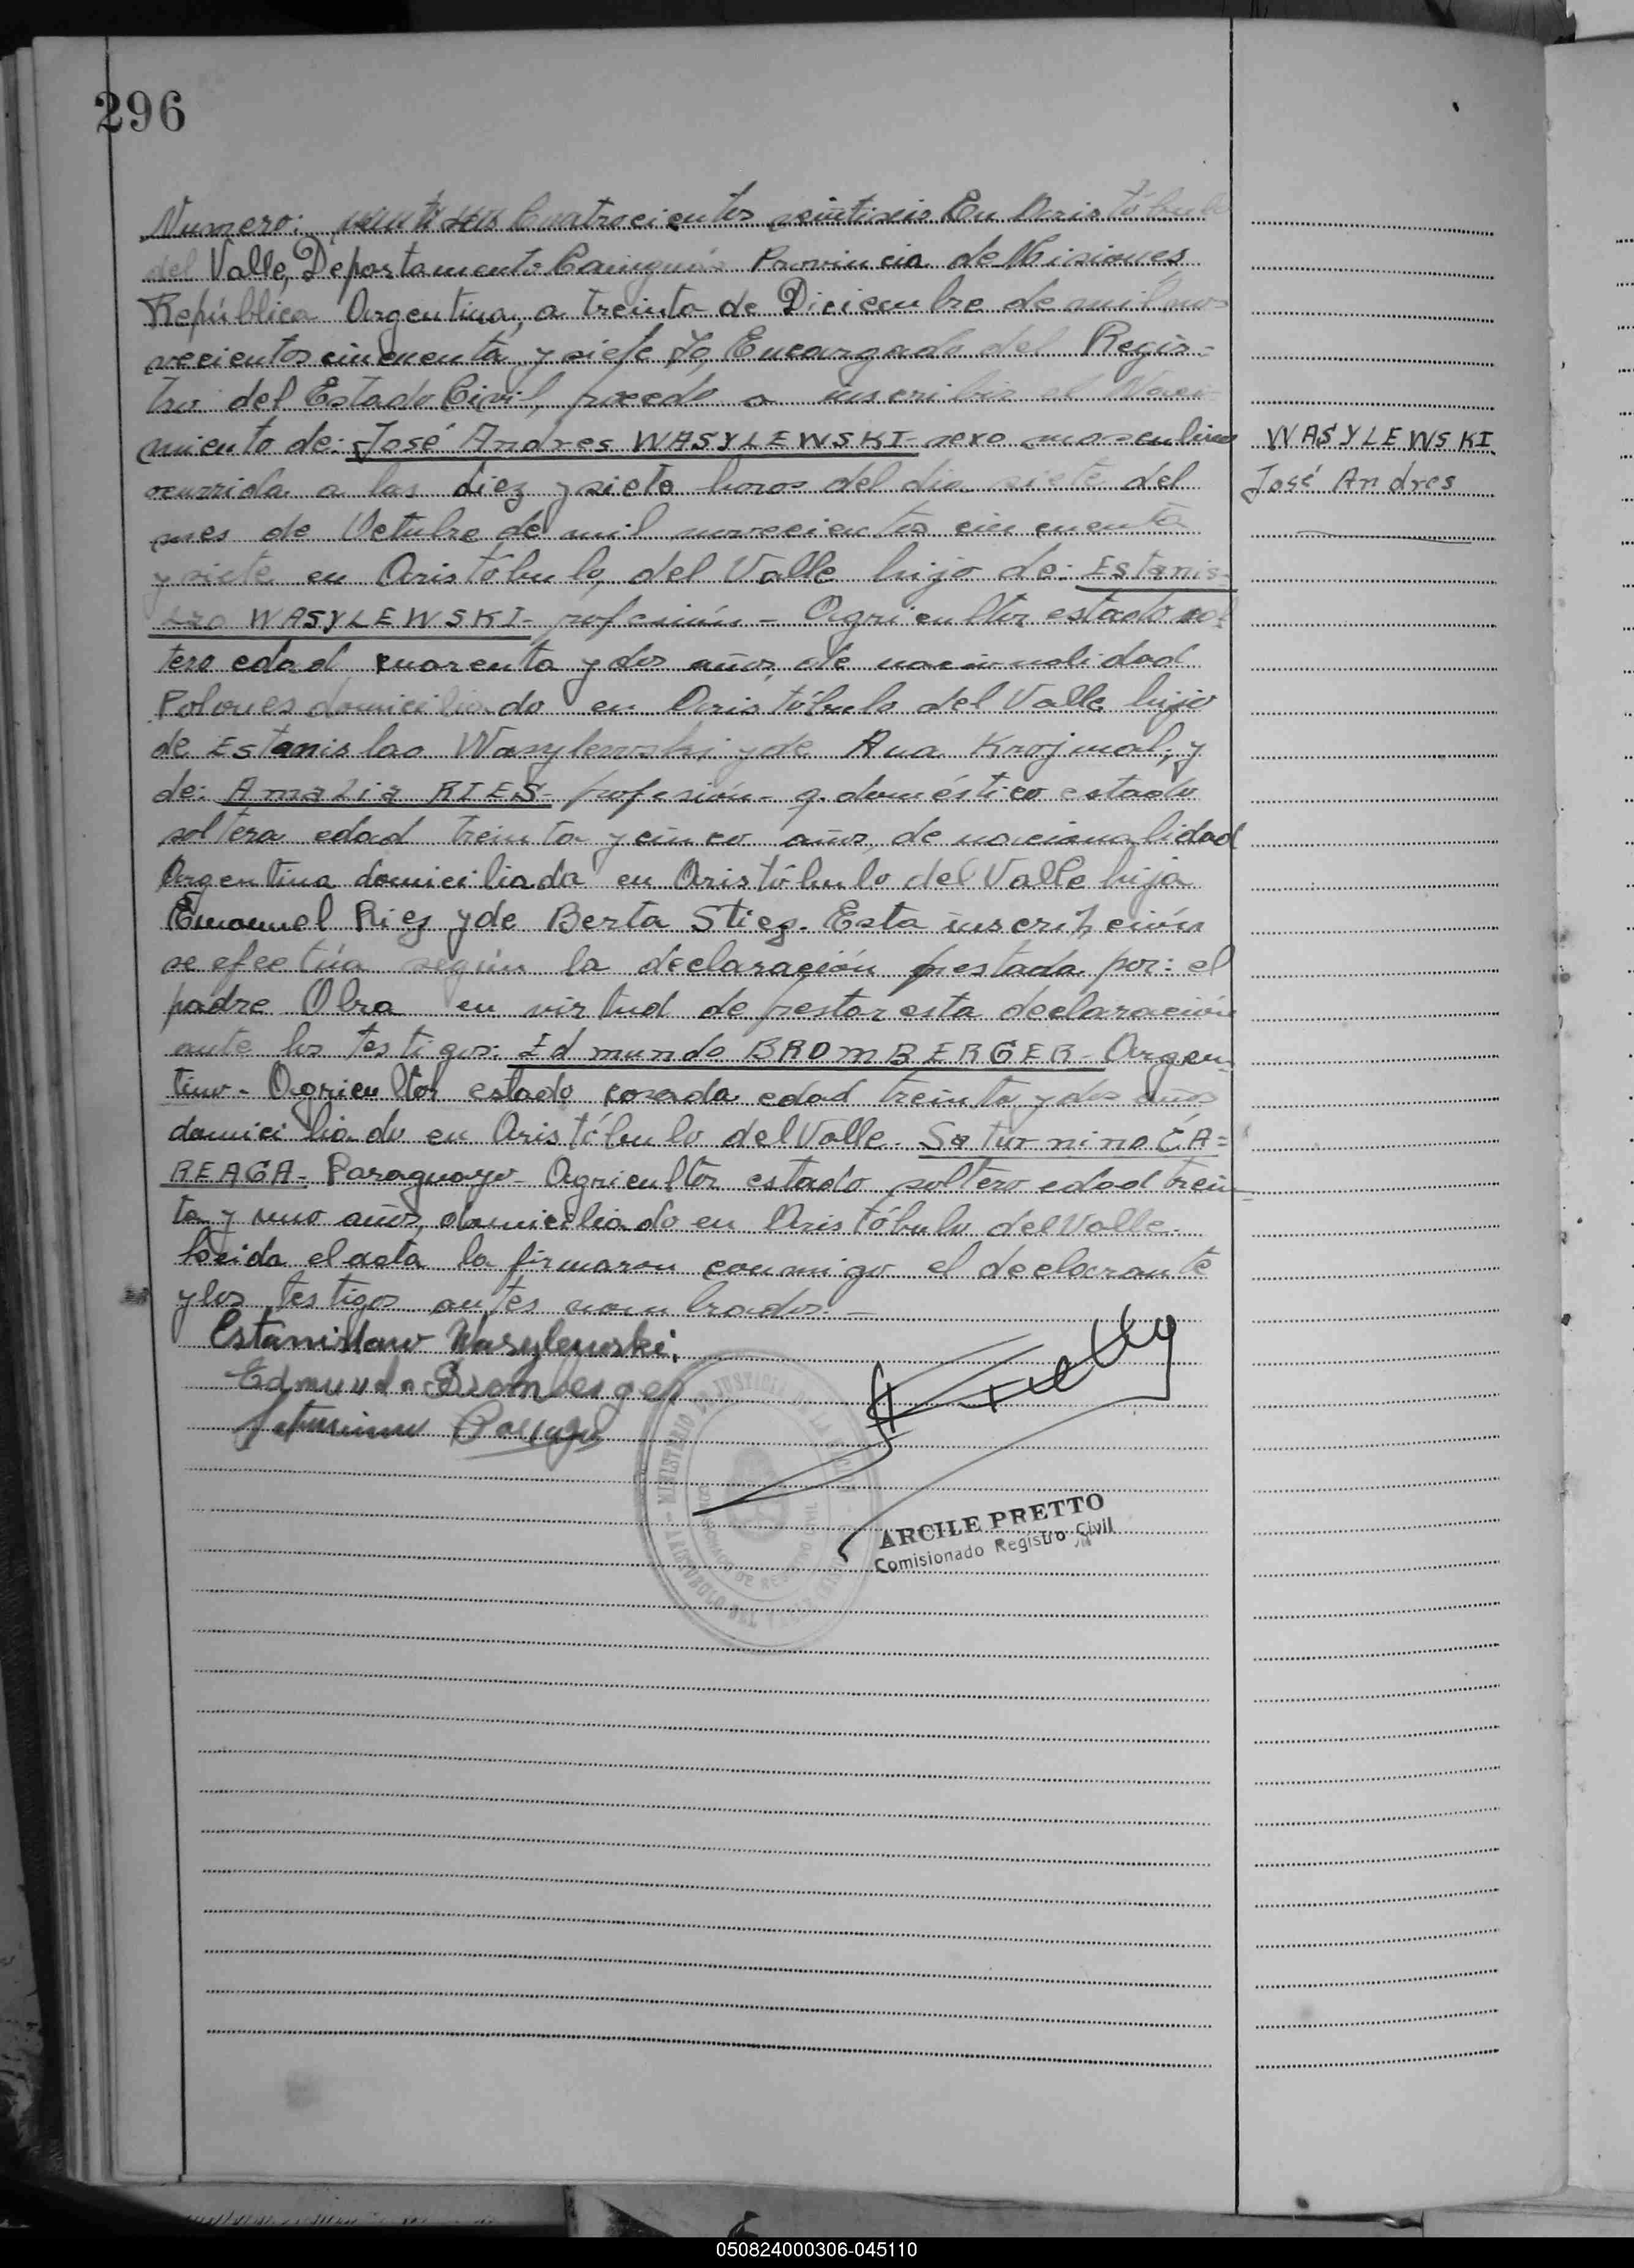 296
Numero: Cuatrocientos veintiseis En Aristóbulo
del Valle, Departamento Cainguás Provincia de Misiones
República Argentina, a treinta de Diciembre de mil no=
vecientos cincuenta y siete Yo, Encargado del Regis=
tro del Estado Civil, procedo a inscribir el Naci
miento de: José Andres WASYLEWSKI- sexo masculino
ocurrida a las diez y siete horas del dia siete del
mes de Octubre de mil novecientos cincuenta
y siete en Aristóbulo, del Valle hijo de: Estanis=
lao WASYLEWSKI- profesión - Agricultor estado sol
tero edad cuarenta y dos años, de nacionalidad
Polones domiciliado en Aristóbulo del Valle hijo
de Estanislao Wasylewski y de Ana Krojmal, y
de: Amalia RIES- profesión- q. doméstico estado
soltera edad treinta y cinco años, de nacionalidad
Argentina domiciliada en Aristóbulo del Valle hija
Emanuel Ries y de Berta Stieg. Esta inscripción
se efectúa según la declaración prestada por: el
padre Obra en virtud de prestar esta declaración
ante los testigos: Edmundo BROMBERGER- Argen=
tino- Agricultor estado casado edad treinta y dos años
domiciliado en Aristóbulo del Valle. Saturnino CA=
REAGA- Paraguayo- Agricultor estado soltero edad trein=
ta y uno años, domiciliado en Aristóbulo del Valle.
Leida el acta la firmaron conmigo el declarante
y los testigos antes nombrados.-
Estanislaw Wasylewski.
Edmundo Bromberger
Saturnino
ARCILE PRETTO
Comisionado Registro Civil
MINISTERIO DE JUSTICIA DE LA NACION
WASYLEWSKI
José Andres
050824000306-045110